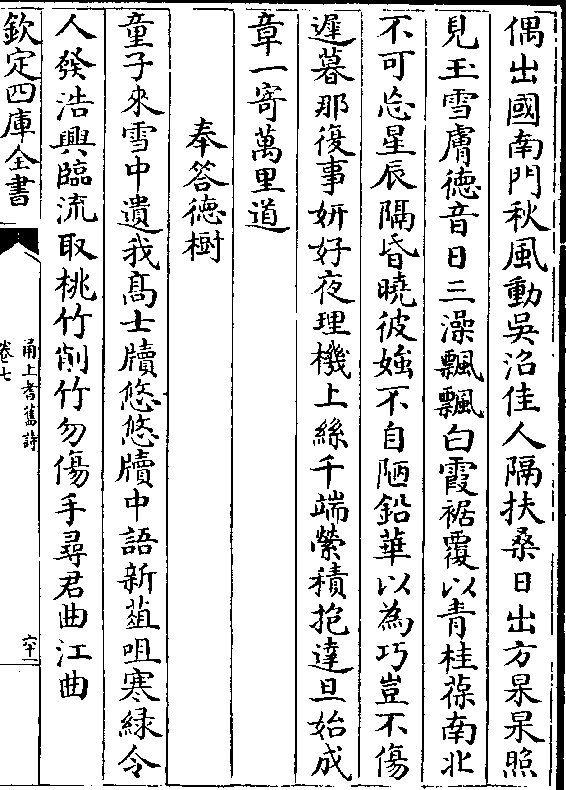 偶出國南門秋風動吳沼佳人隔扶桑日出方杲杲照
見玉雪膚德音日三澡飄飄白霞裾覆以青桂葆南北
不可忘星辰隔昏曉彼媸不自陋鉛華以為巧豈不傷
遲暮那復事妍好夜理機上絲千端縈積抱達旦始成
章一寄萬里道
奉答德樹
童子來雪中遺我髙士牘悠悠牘中語新葅咀寒緑令
人發浩興臨流取桃竹削竹勿傷手尋君曲江曲
欽定四庫全書
甬上耆舊詩
卷七
六十二